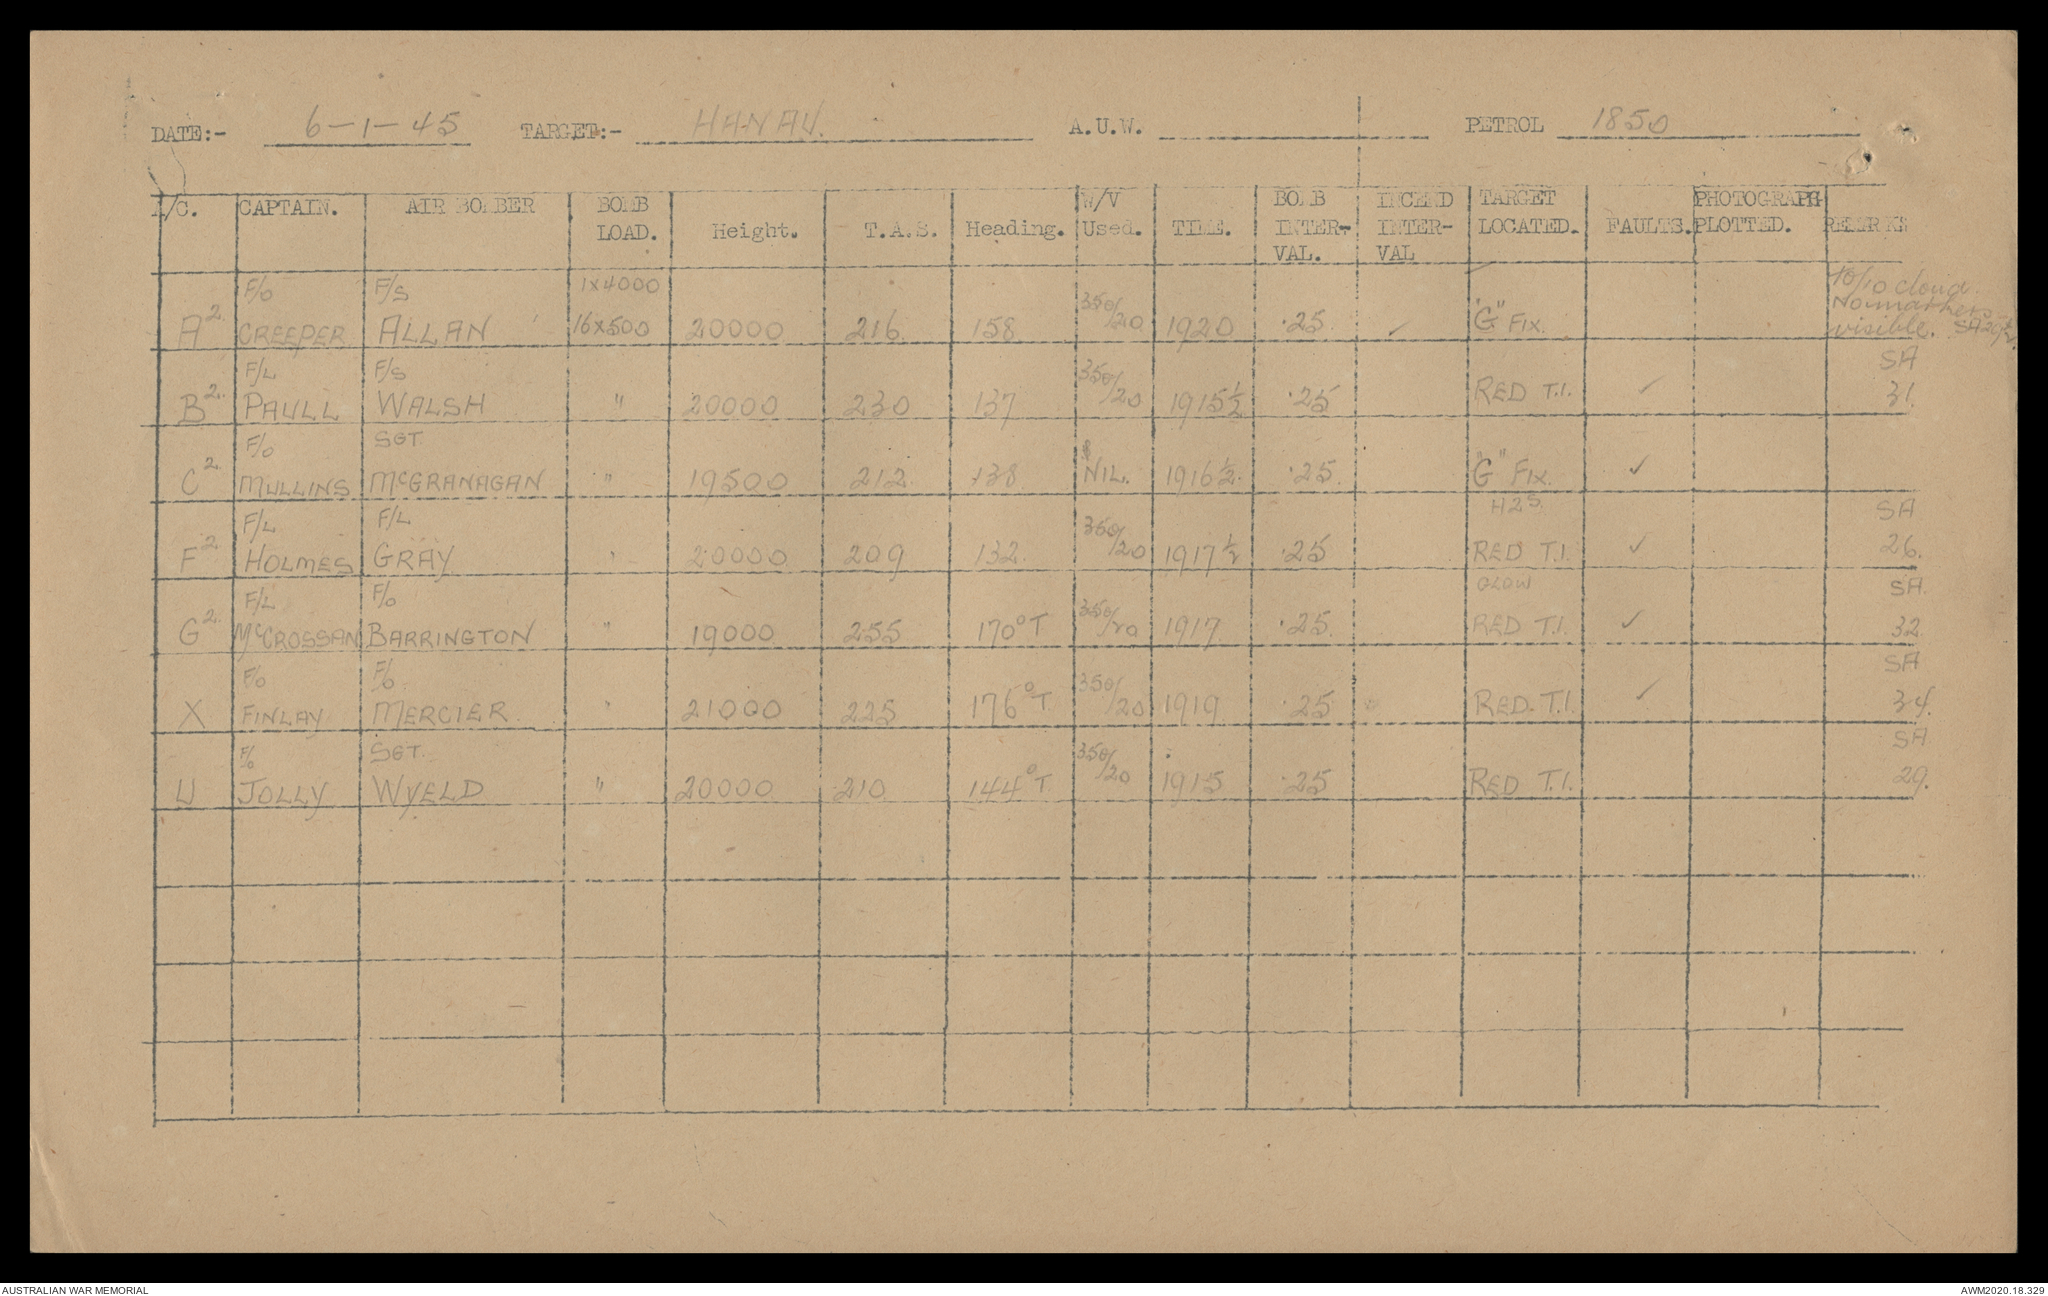 DATE:- 6-1-45 TARGET:- HANAU. A.U.W. PETROL 1850
A/C. CAPTAIN. AIR BOMBER BOMB LOAD. Height. T.A.S. Heading. W/V Used. TIME. BOMB INTER-VAL. INCEND INTER-VAL TARGET LOCATED. FAULTS. PHOTOGRAPH PLOTTED. REMARKS
A2. F/O CREEPER F/S ALLAN 1x4000 16x500 20000 216. 158 350/20 1920 .25. ✓ "G" FIX. 10/10 cloud. No markers visible. SA 20½
B2. F/L PAULL F/S WALSH " 20000 230 137 350/20 1915½ .25 RED T.I. ✓ SA 31.
C2. F/O MULLINS SGT McGRANAGAN " 19500 212. 138 NIL. 1916½. .25. "G" FIX. ✓
F2. F/L HOLMES F/L GRAY " 20000 209 132. 350/20 1917½ .25 H2S RED T.I. ✓ SA 26.
G2. F/L McCROSSAN F/O BARRINGTON " 19000 255 170°T 350/20 1917 .25. GLOW RED T.I. ✓ SA. 32
X F/O FINLAY F/O MERCIER " 21000 225 176°T 350/20 1919 .25 RED. T.I. ✓ SA 34.
U F/O JOLLY SGT. WYELD " 20000 210 144°T 350/20 1915 .25 RED T.I. SA 29.
AUSTRALIAN WAR MEMORIAL AWM2020.18.329